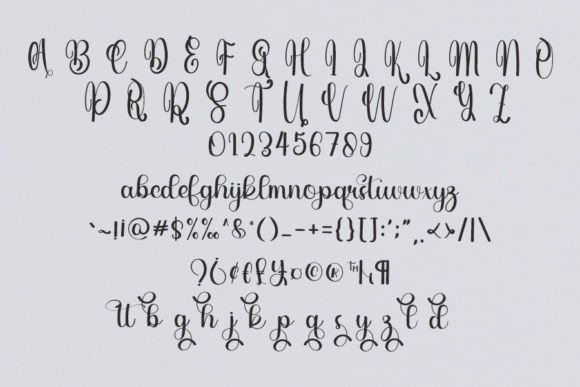 A B C D E F G H I J K L M N O
P Q R S T U V W X Y Z
0123456789
abcdefghijklmnopqrstuvwxyz
`~!¡@#$%‰^&*()_-+={}[]:';",.<>/|\
?¿¢€£¥¤©®™µ¶
u b g h j k p q s y z l d